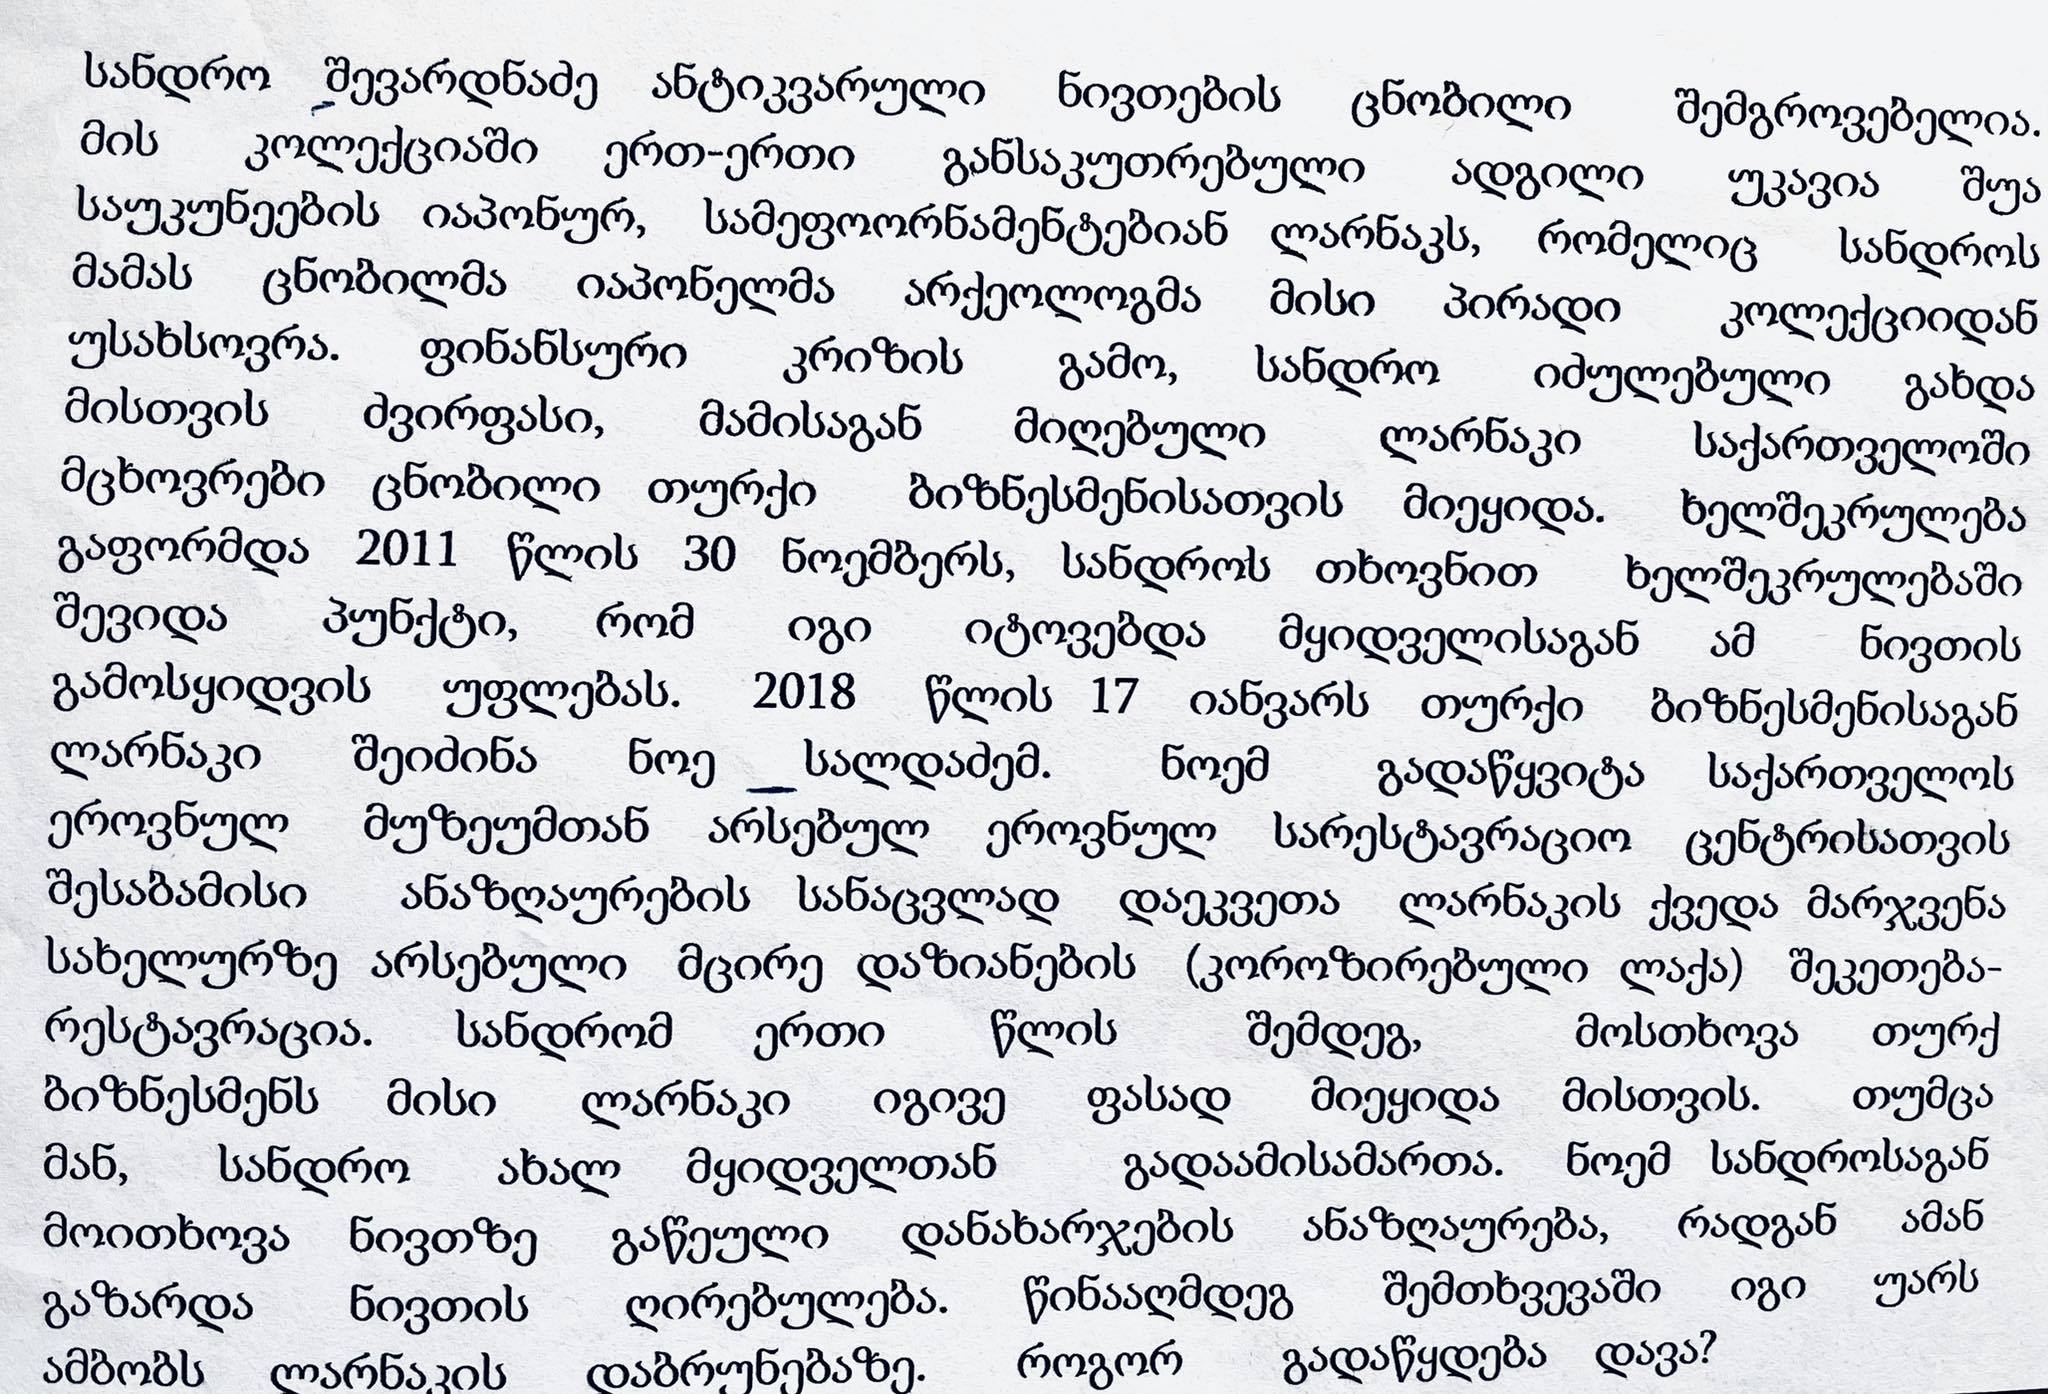 სანდრო შევარდნაძე ანტიკვარული ნივთების ცნობილი შემგროვებელია.
მის კოლექციაში ერთ-ერთი განსაკუთრებული ადგილი უკავია შუა
საუკუნეების იაპონურ, სამეფოორნამენტებიან ლარნაკს, რომელიც სანდროს
მამას ცნობილმა იაპონელმა არქეოლოგმა მისი პირადი კოლექციიდან
უსახსოვრა. ფინანსური კრიზის გამო, სანდრო იძულებული გახდა
მისთვის ძვირფასი, მამისაგან მიღებული ლარნაკი საქართველოში
მცხოვრები ცნობილი თურქი ბიზნესმენისათვის მიეყიდა. ხელშეკრულება
გაფორმდა 2011 წლის 30 ნოემბერს, სანდროს თხოვნით ხელშეკრულებაში
შევიდა პუნქტი, რომ იგი იტოვებდა მყიდველისაგან ამ ნივთის
გამოსყიდვის უფლებას. 2018 წლის 17 იანვარს თურქი ბიზნესმენისაგან
ლარნაკი შეიძინა ნოე სალდაძემ. ნოემ გადაწყვიტა საქართველოს
ეროვნულ მუზეუმთან არსებულ ეროვნულ სარესტავრაციო ცენტრისათვის
შესაბამისი ანაზღაურების სანაცვლად დაეკვეთა ლარნაკის ქვედა მარჯვენა
სახელურზე არსებული მცირე დაზიანების (კოროზირებული ლაქა) შეკეთება-
რესტავრაცია. სანდრომ ერთი წლის შემდეგ, მოსთხოვა თურქ
ბიზნესმენს მისი ლარნაკი იგივე ფასად მიეყიდა მისთვის. თუმცა
მან, სანდრო ახალ მყიდველთან გადაამისამართა. ნოემ სანდროსაგან
მოითხოვა ნივთზე გაწეული დანახარჯების ანაზღაურება, რადგან ამან
გაზარდა ნივთის ღირებულება. წინააღმდეგ შემთხვევაში იგი უარს
ამბობს ლარნაკის დაბრუნებაზე. როგორ გადაწყდება დავა?